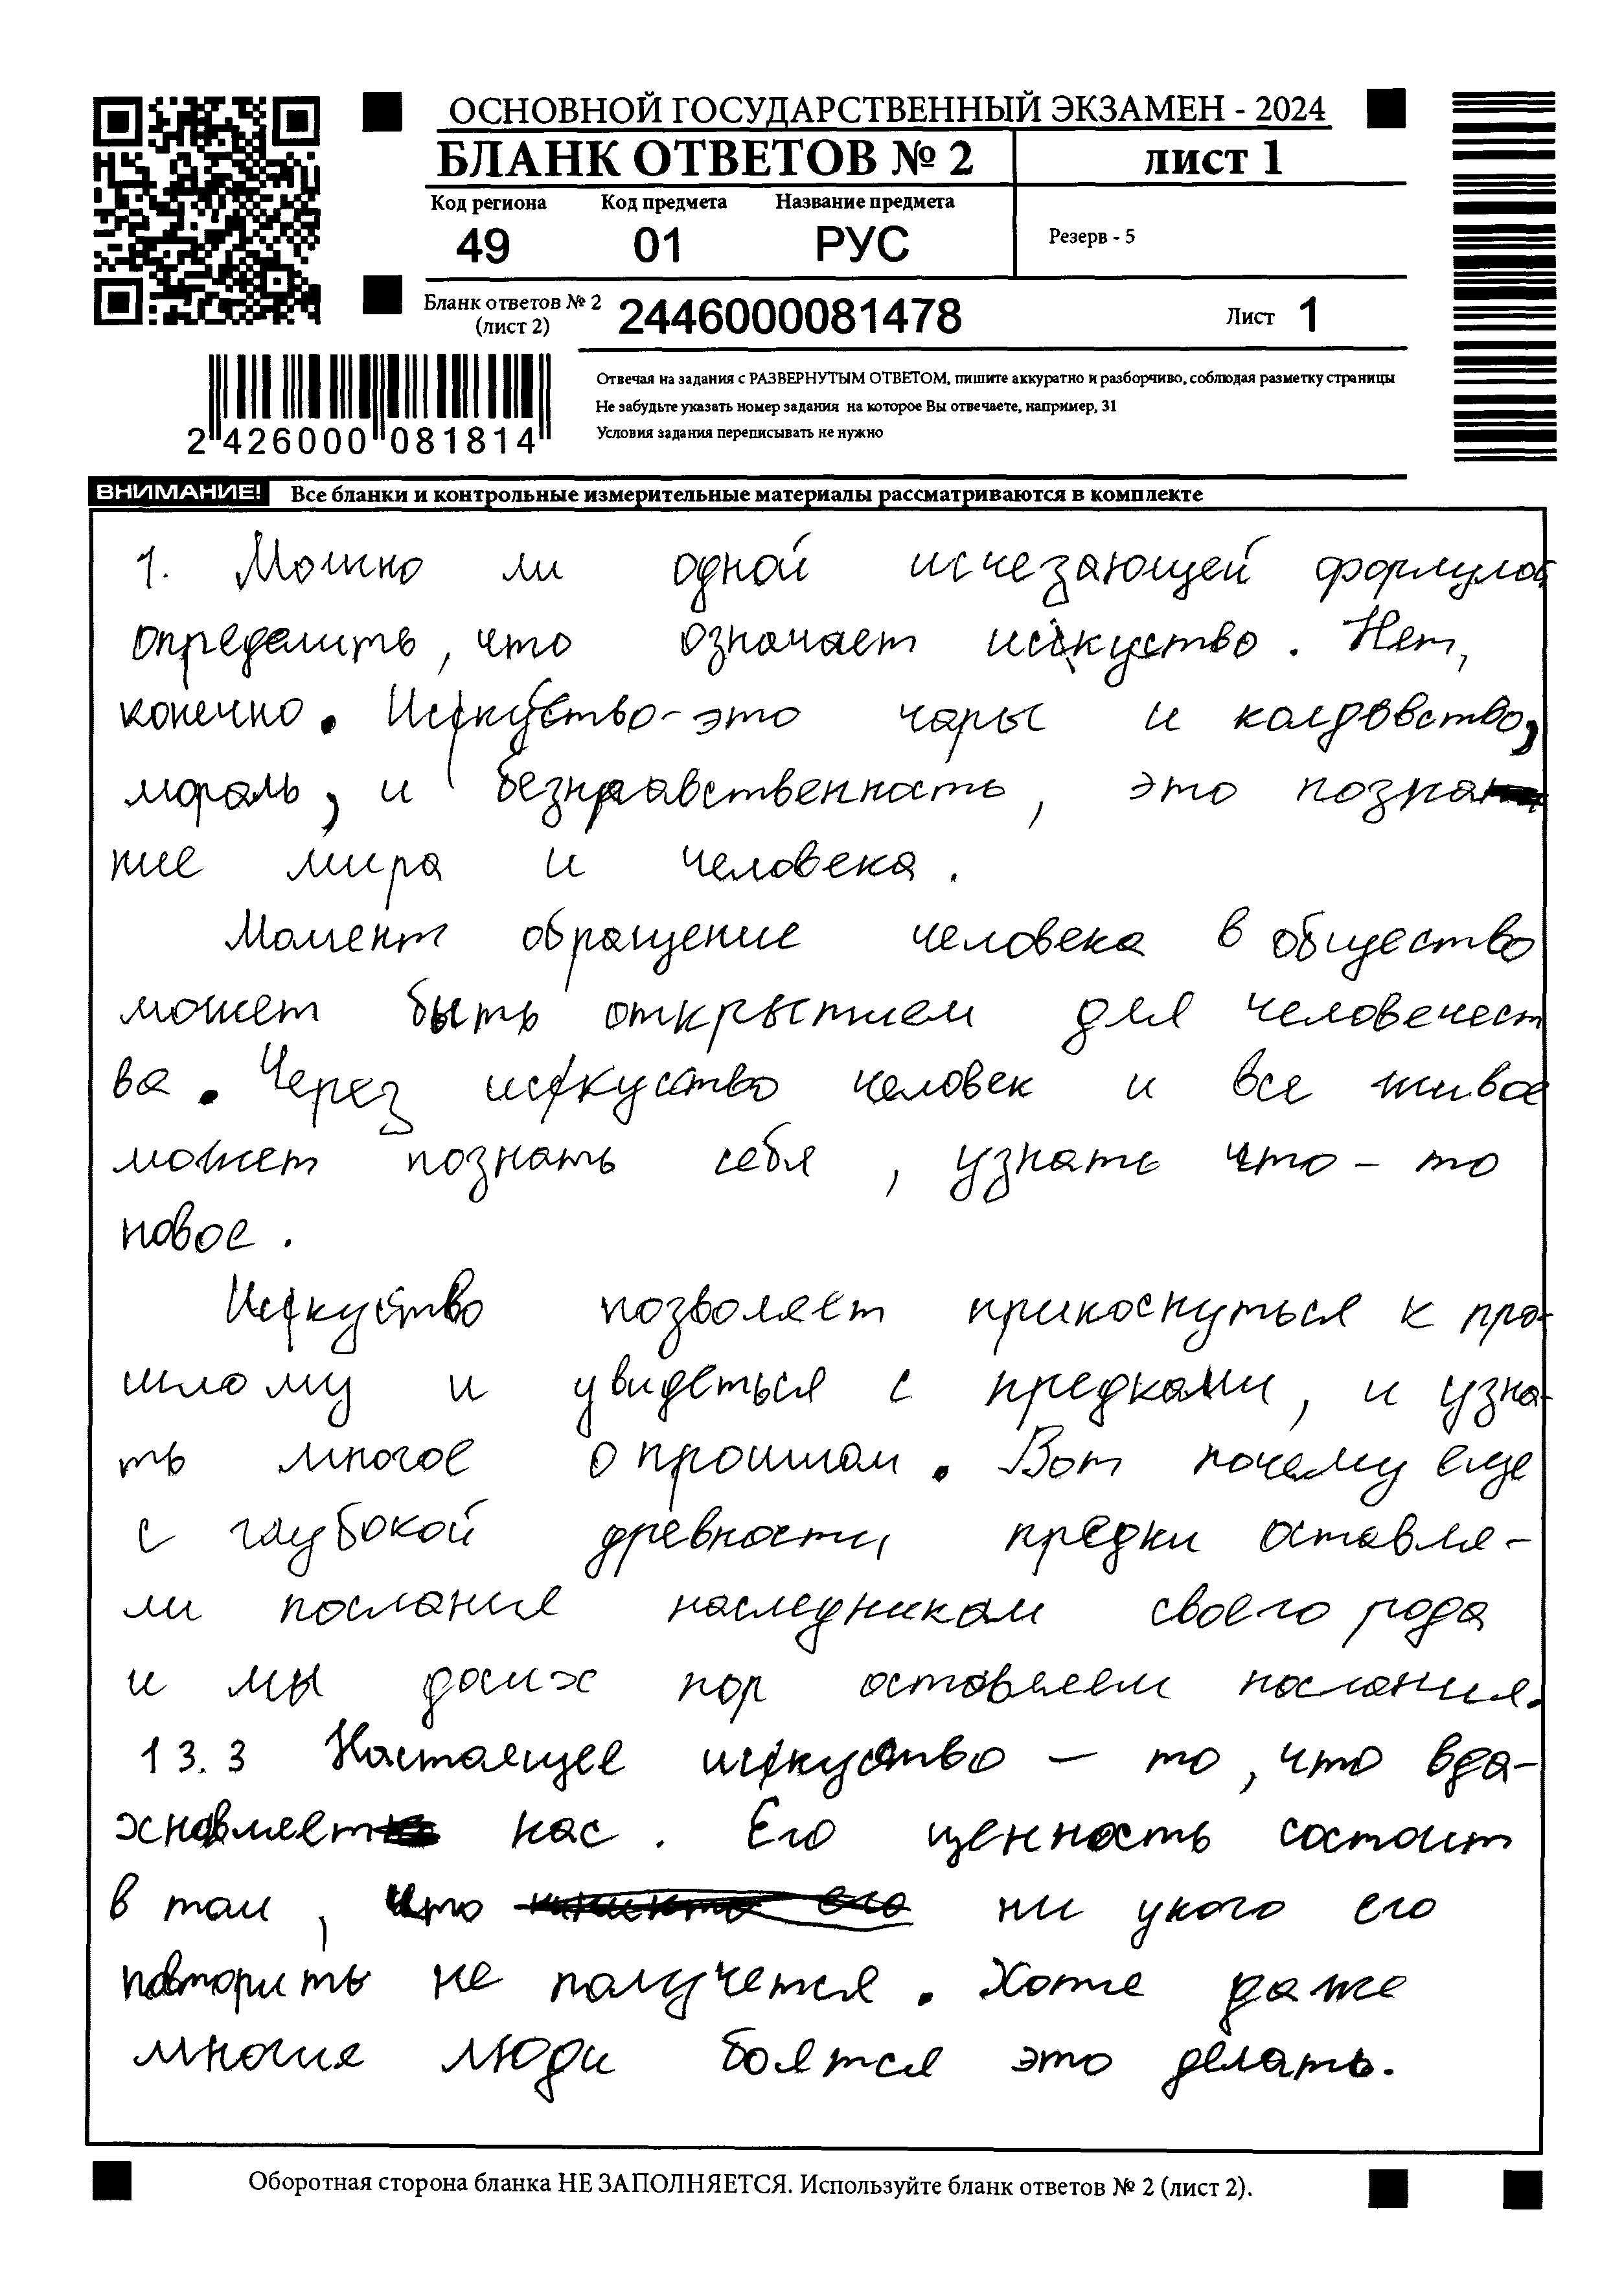 ОСНОВНОЙ ГОСУДАРСТВЕННЫЙ ЭКЗАМЕН - 2024
БЛАНК ОТВЕТОВ № 2 лист 1
Код региона Код предмета Название предмета
49 01 РУС Резерв - 5
Бланк ответов № 2 (лист 2) 2446000081478 Лист 1
2 426000 081814
Отвечая на задания с РАЗВЕРНУТЫМ ОТВЕТОМ, пишите аккуратно и разборчиво, соблюдая разметку страницы
Не забудьте указать номер задания на которое Вы отвечаете, например, 31
Условия задания переписывать не нужно
ВНИМАНИЕ! Все бланки и контрольные измерительные материалы рассматриваются в комплекте
1. Можно ли одной исчезающей формулой
определить, что означает искуство. Нет,
конечно. Искуство-это чары и колдовство,
мораль, и безнравственность, это позна
ние мира и человека.
Момент обращение человека в общество
может быть открытием для человечест
ва. Через искуство человек и все живое
может познать себя, узнать что-то
новое.
Искуство позволяет прикоснуться к про-
шлому и увидеться с предками, и узна-
ть многое о прошлом. Вот почему еще
с глубокой древности предки оставля-
ли послание наследникам своего рода
и мы до сих пор оставляем послания.
13.3 Настоящее искуство — то, что вда-
хновляет нас. Его ценность состоит
в том, что ни укого его
повторить не получется. Хотя даже
многие люди боятся это делать.
Оборотная сторона бланка НЕ ЗАПОЛНЯЕТСЯ. Используйте бланк ответов № 2 (лист 2).